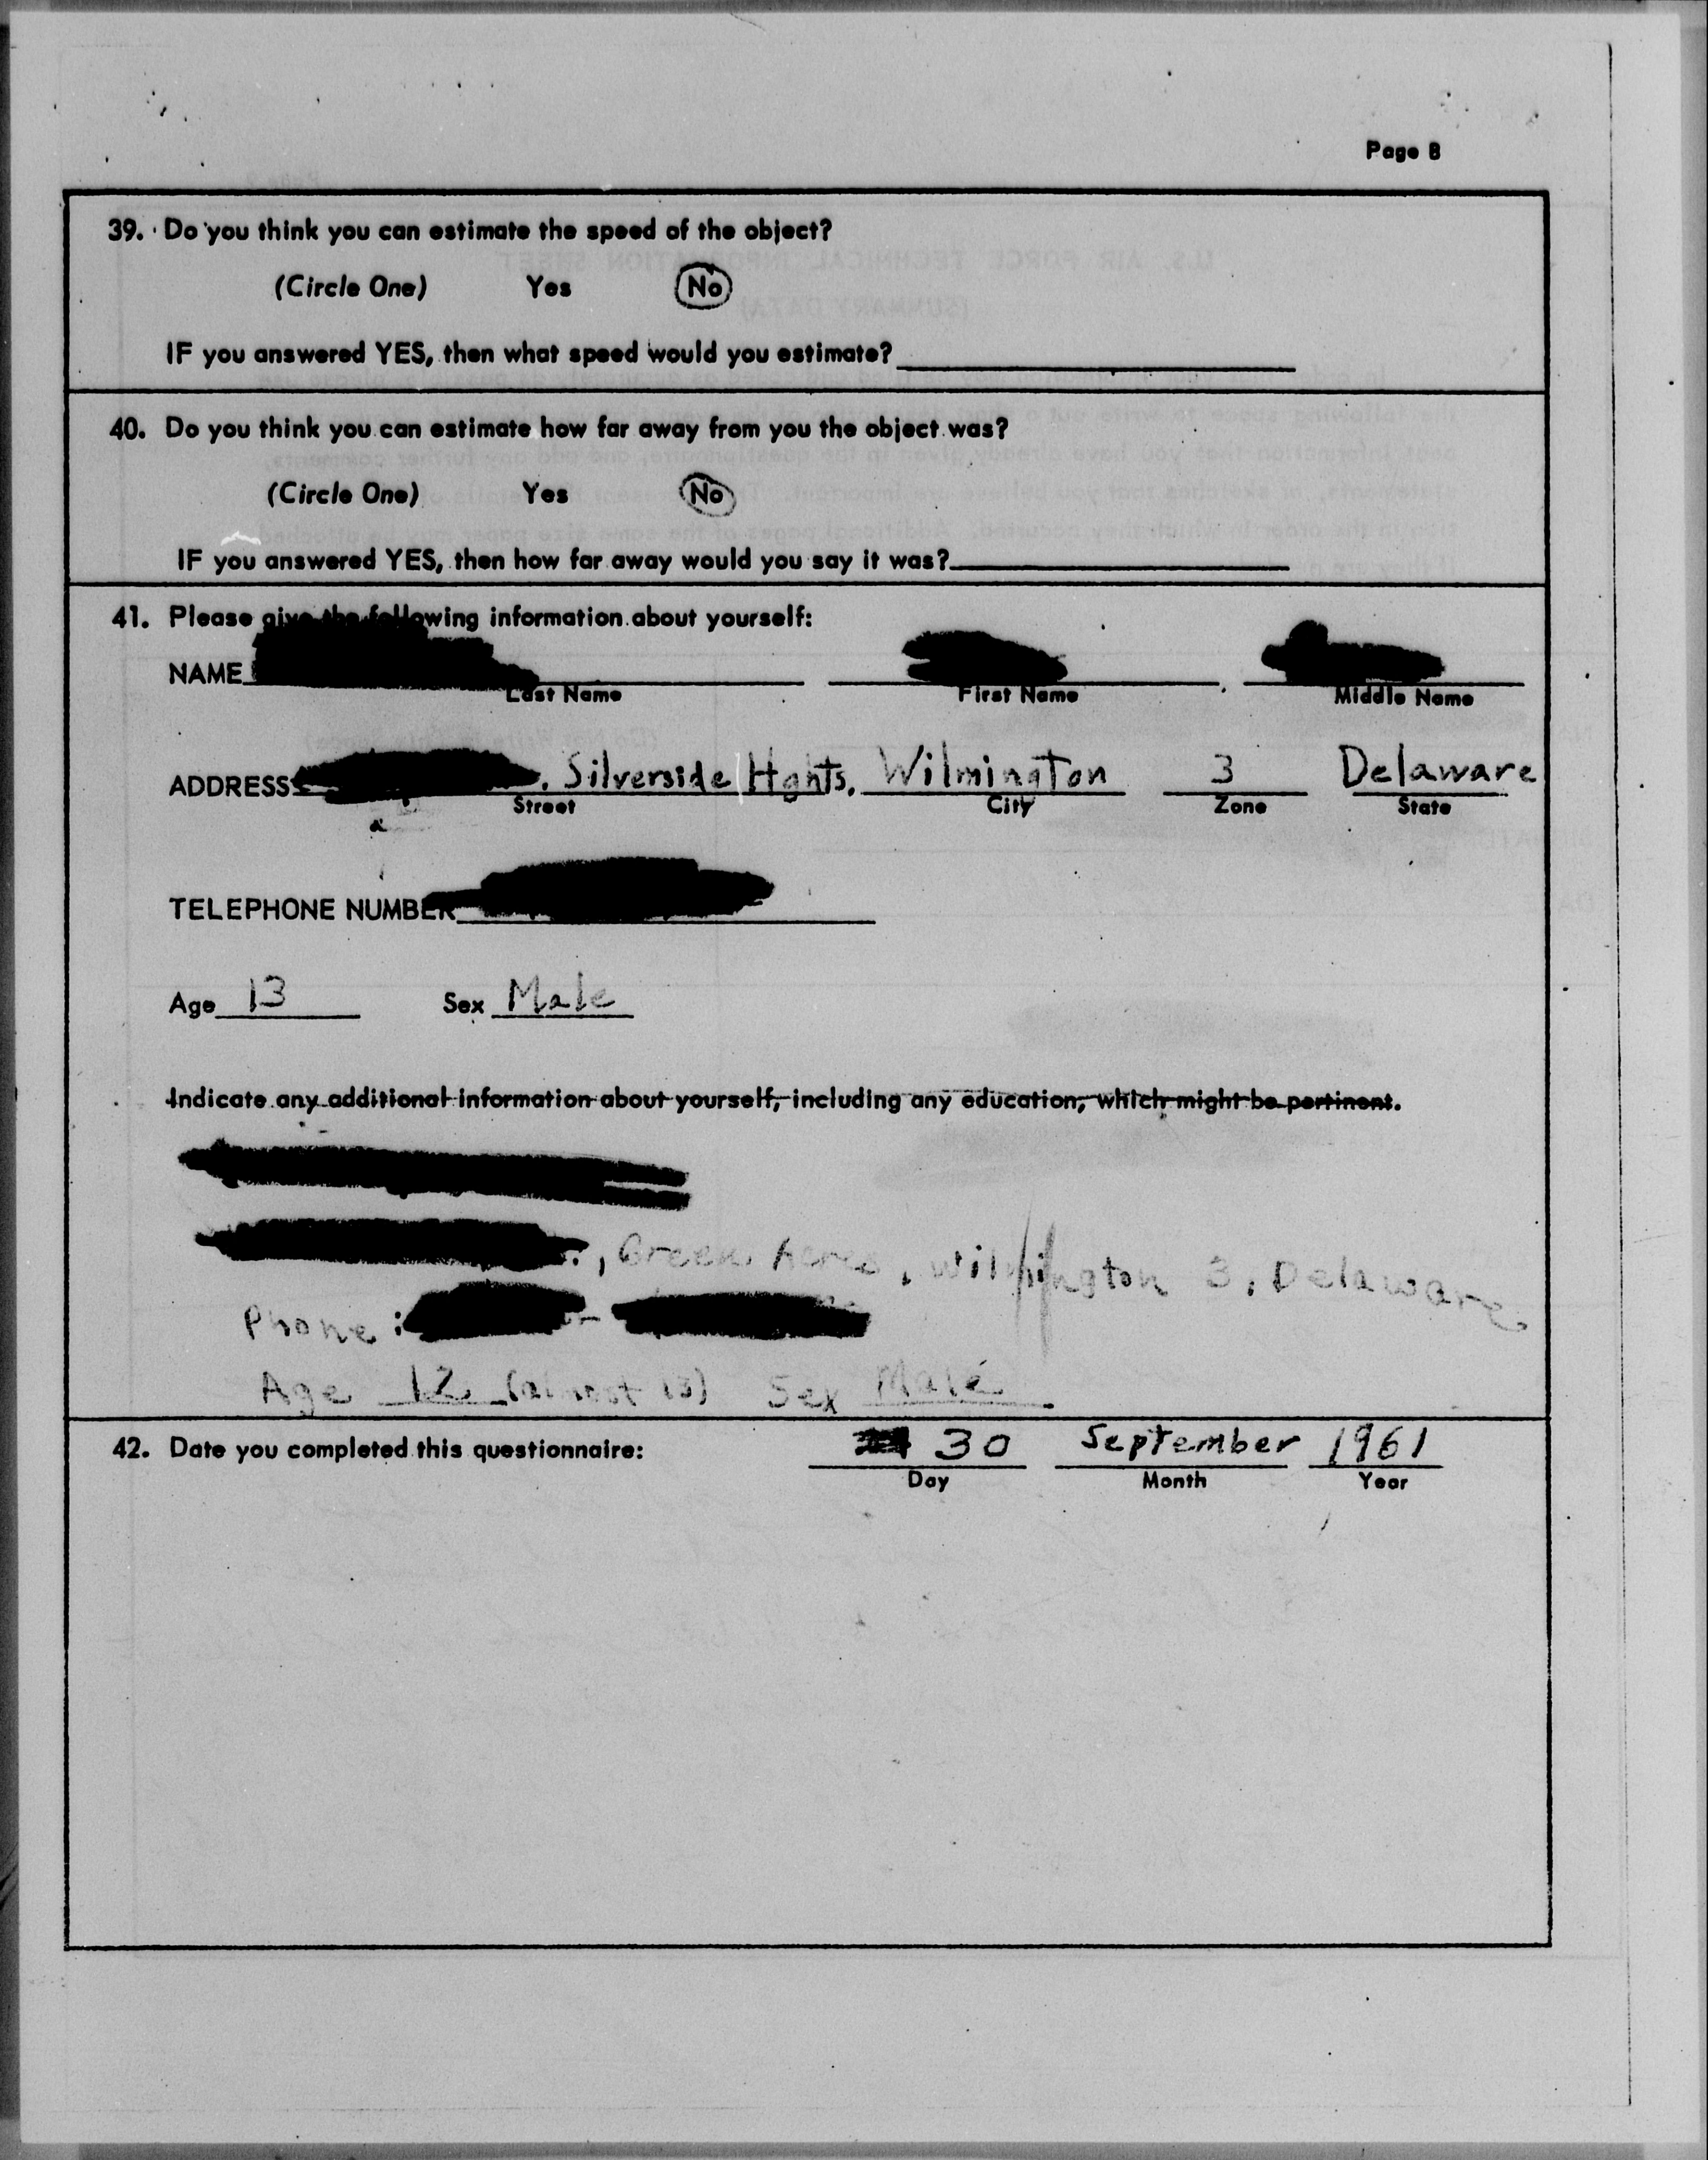 Page 8
39. Do you think you can estimate the speed of the object?
(Circle One) Yes No
IF you answered YES, then what speed would you estimate?
40. Do you think you can estimate how far away from you the object was?
(Circle One) Yes No
IF you answered YES, then how far away would you say it was?
41. Please give the following information about yourself:
NAME
Last Name First Name Middle Name
ADDRESS , Silverside Hghts, Wilmington 3 Delaware
Street City Zone State
TELEPHONE NUMBER
Age 13 Sex Male
Indicate any additional information about yourself, including any education, which might be pertinent.
, Green Acres, Wilmington 3, Delaware
Phone:
Age 12 (almost 13) Sex Male
42. Date you completed this questionnaire: 30 September 1961
Day Month Year